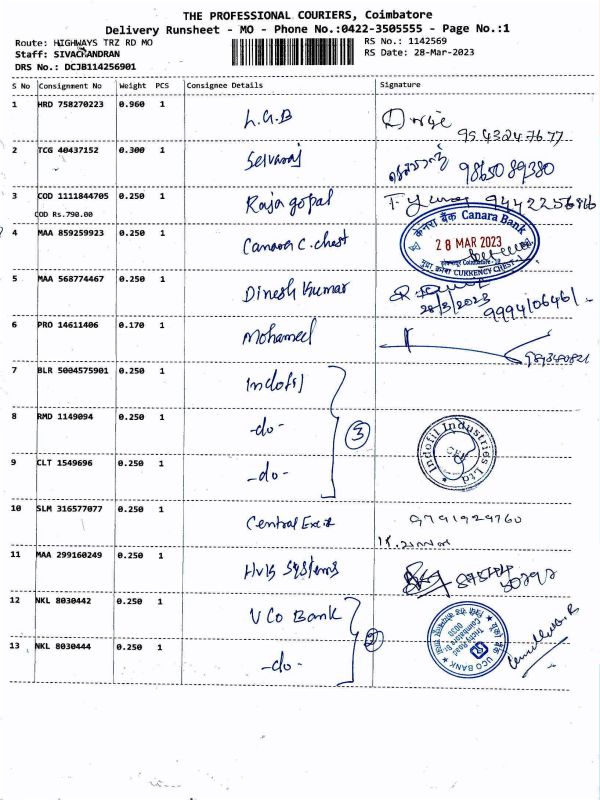 THE PROFESSIONAL COURIERS, Coimbatore
Delivery Runsheet - MO - Phone No.:0422-3505555 - Page No.:1
Route: HIGHWAYS TRZ RD MO
RS No.: 1142569
Staff: SIVACHANDRAN
RS Date: 28-Mar-2023
DRS No.: DCJB114256901
S No Consignment No Weight PCS Consignee Details Signature
1 HRD 758270223 0.960 1 L.G.B
95 4324 7677
2 TCG 40437152 0.300 1 Selvaraj
9865089380
3 COD 1111844705 0.250 1 Raja gopal
COD Rs.790.00
4 MAA 859259923 0.250 1 Canara C. chest
केनरा बैंक Canara Bank
28 MAR 2023
CURRENCY CHEST
5 MAA 568774467 0.250 1 Dinesh Kumar
28/3/2023
6 PRO 14611406 0.170 1 Mohamed
7 BLR 5004575901 0.250 1 Indofil
8 RMD 1149094 0.250 1 -do-
3
Indofil Industries Ltd
9 CLT 1549696 0.250 1 -do-
10 SLM 316577077 0.250 1 Central Excise
9791929760
11 MAA 299160249 0.250 1 Hvk Systems
12 NKL 8030442 0.250 1 UCO Bank
2
UCO BANK
Trichy Road
13 NKL 8030444 0.250 1 -do-